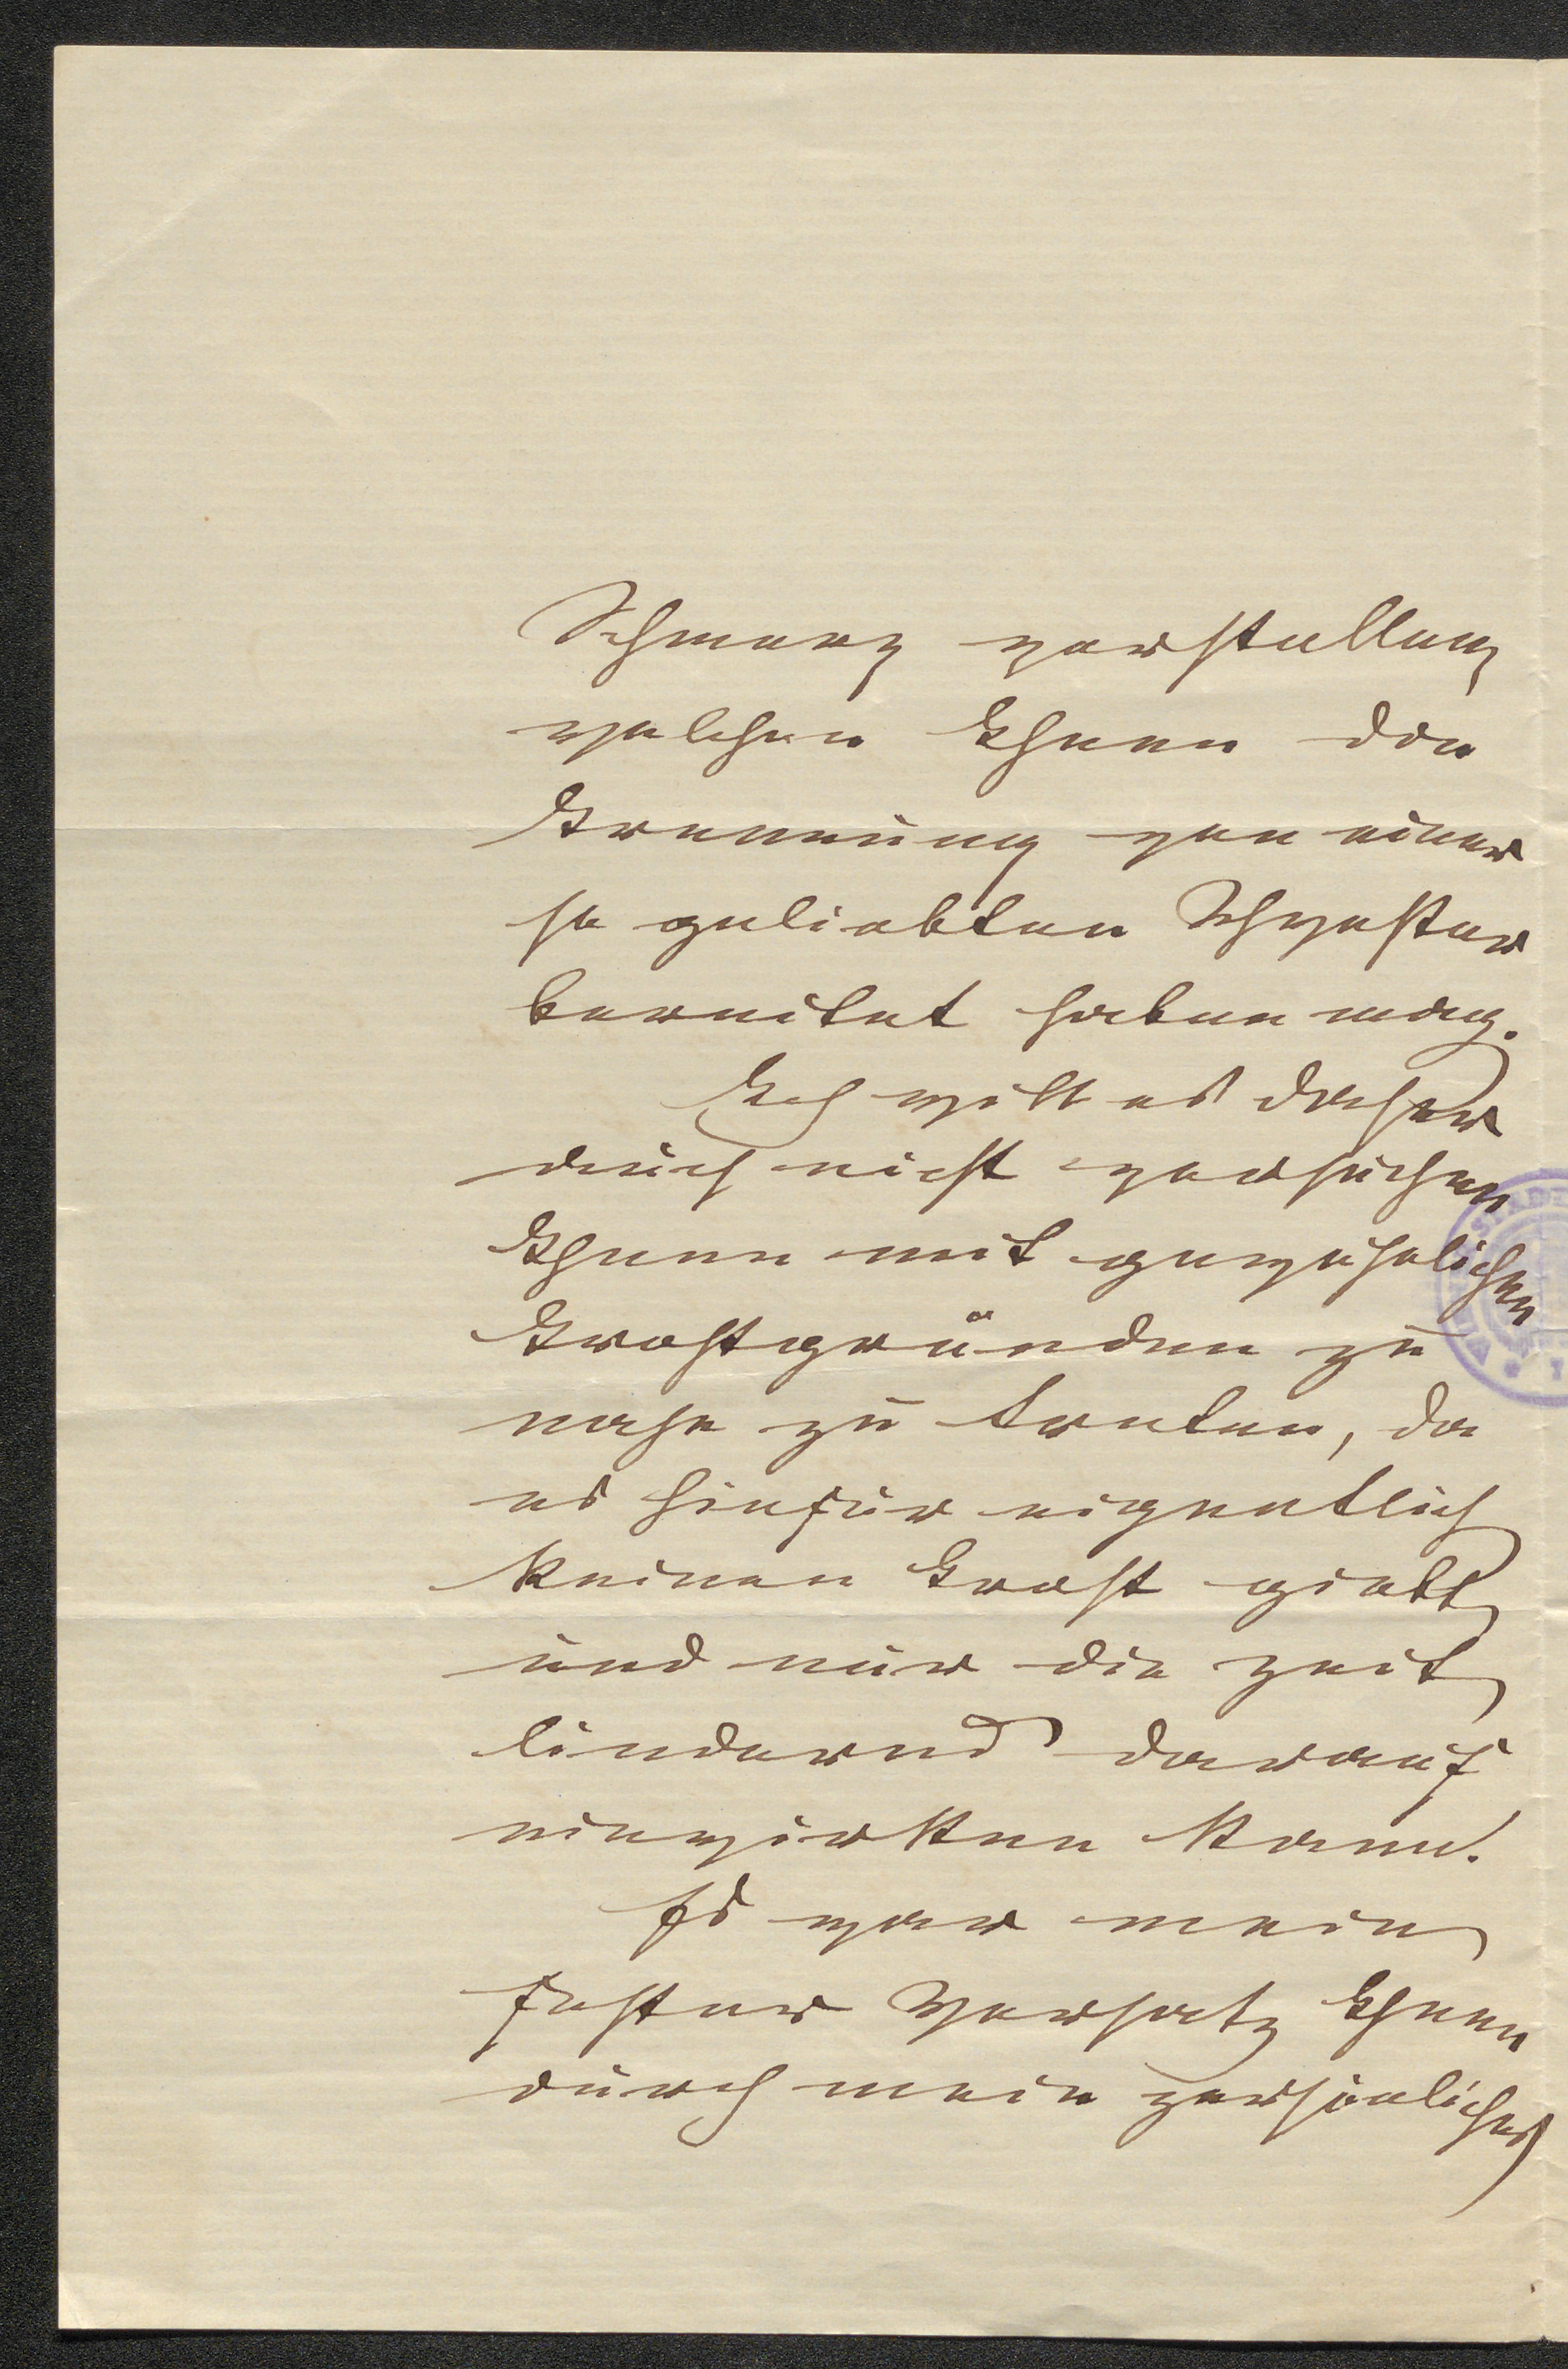 Schmerz vorstellen,
welchen Ihnen die
Trennung von einer
so geliebten Schwester
bereitet haben mag.
Ich will es daher
auch nicht versuchen
Ihnen mit gewöhnlichen
Trostgründen zu
nahe zu treten, da
es hiefür eigentlich
keinen Trost giebt,
und nur die Zeit,
lindernd darauf
einwirken kann.
Es war mein
fester Vorsatz Ihnen
durch mein persönliches